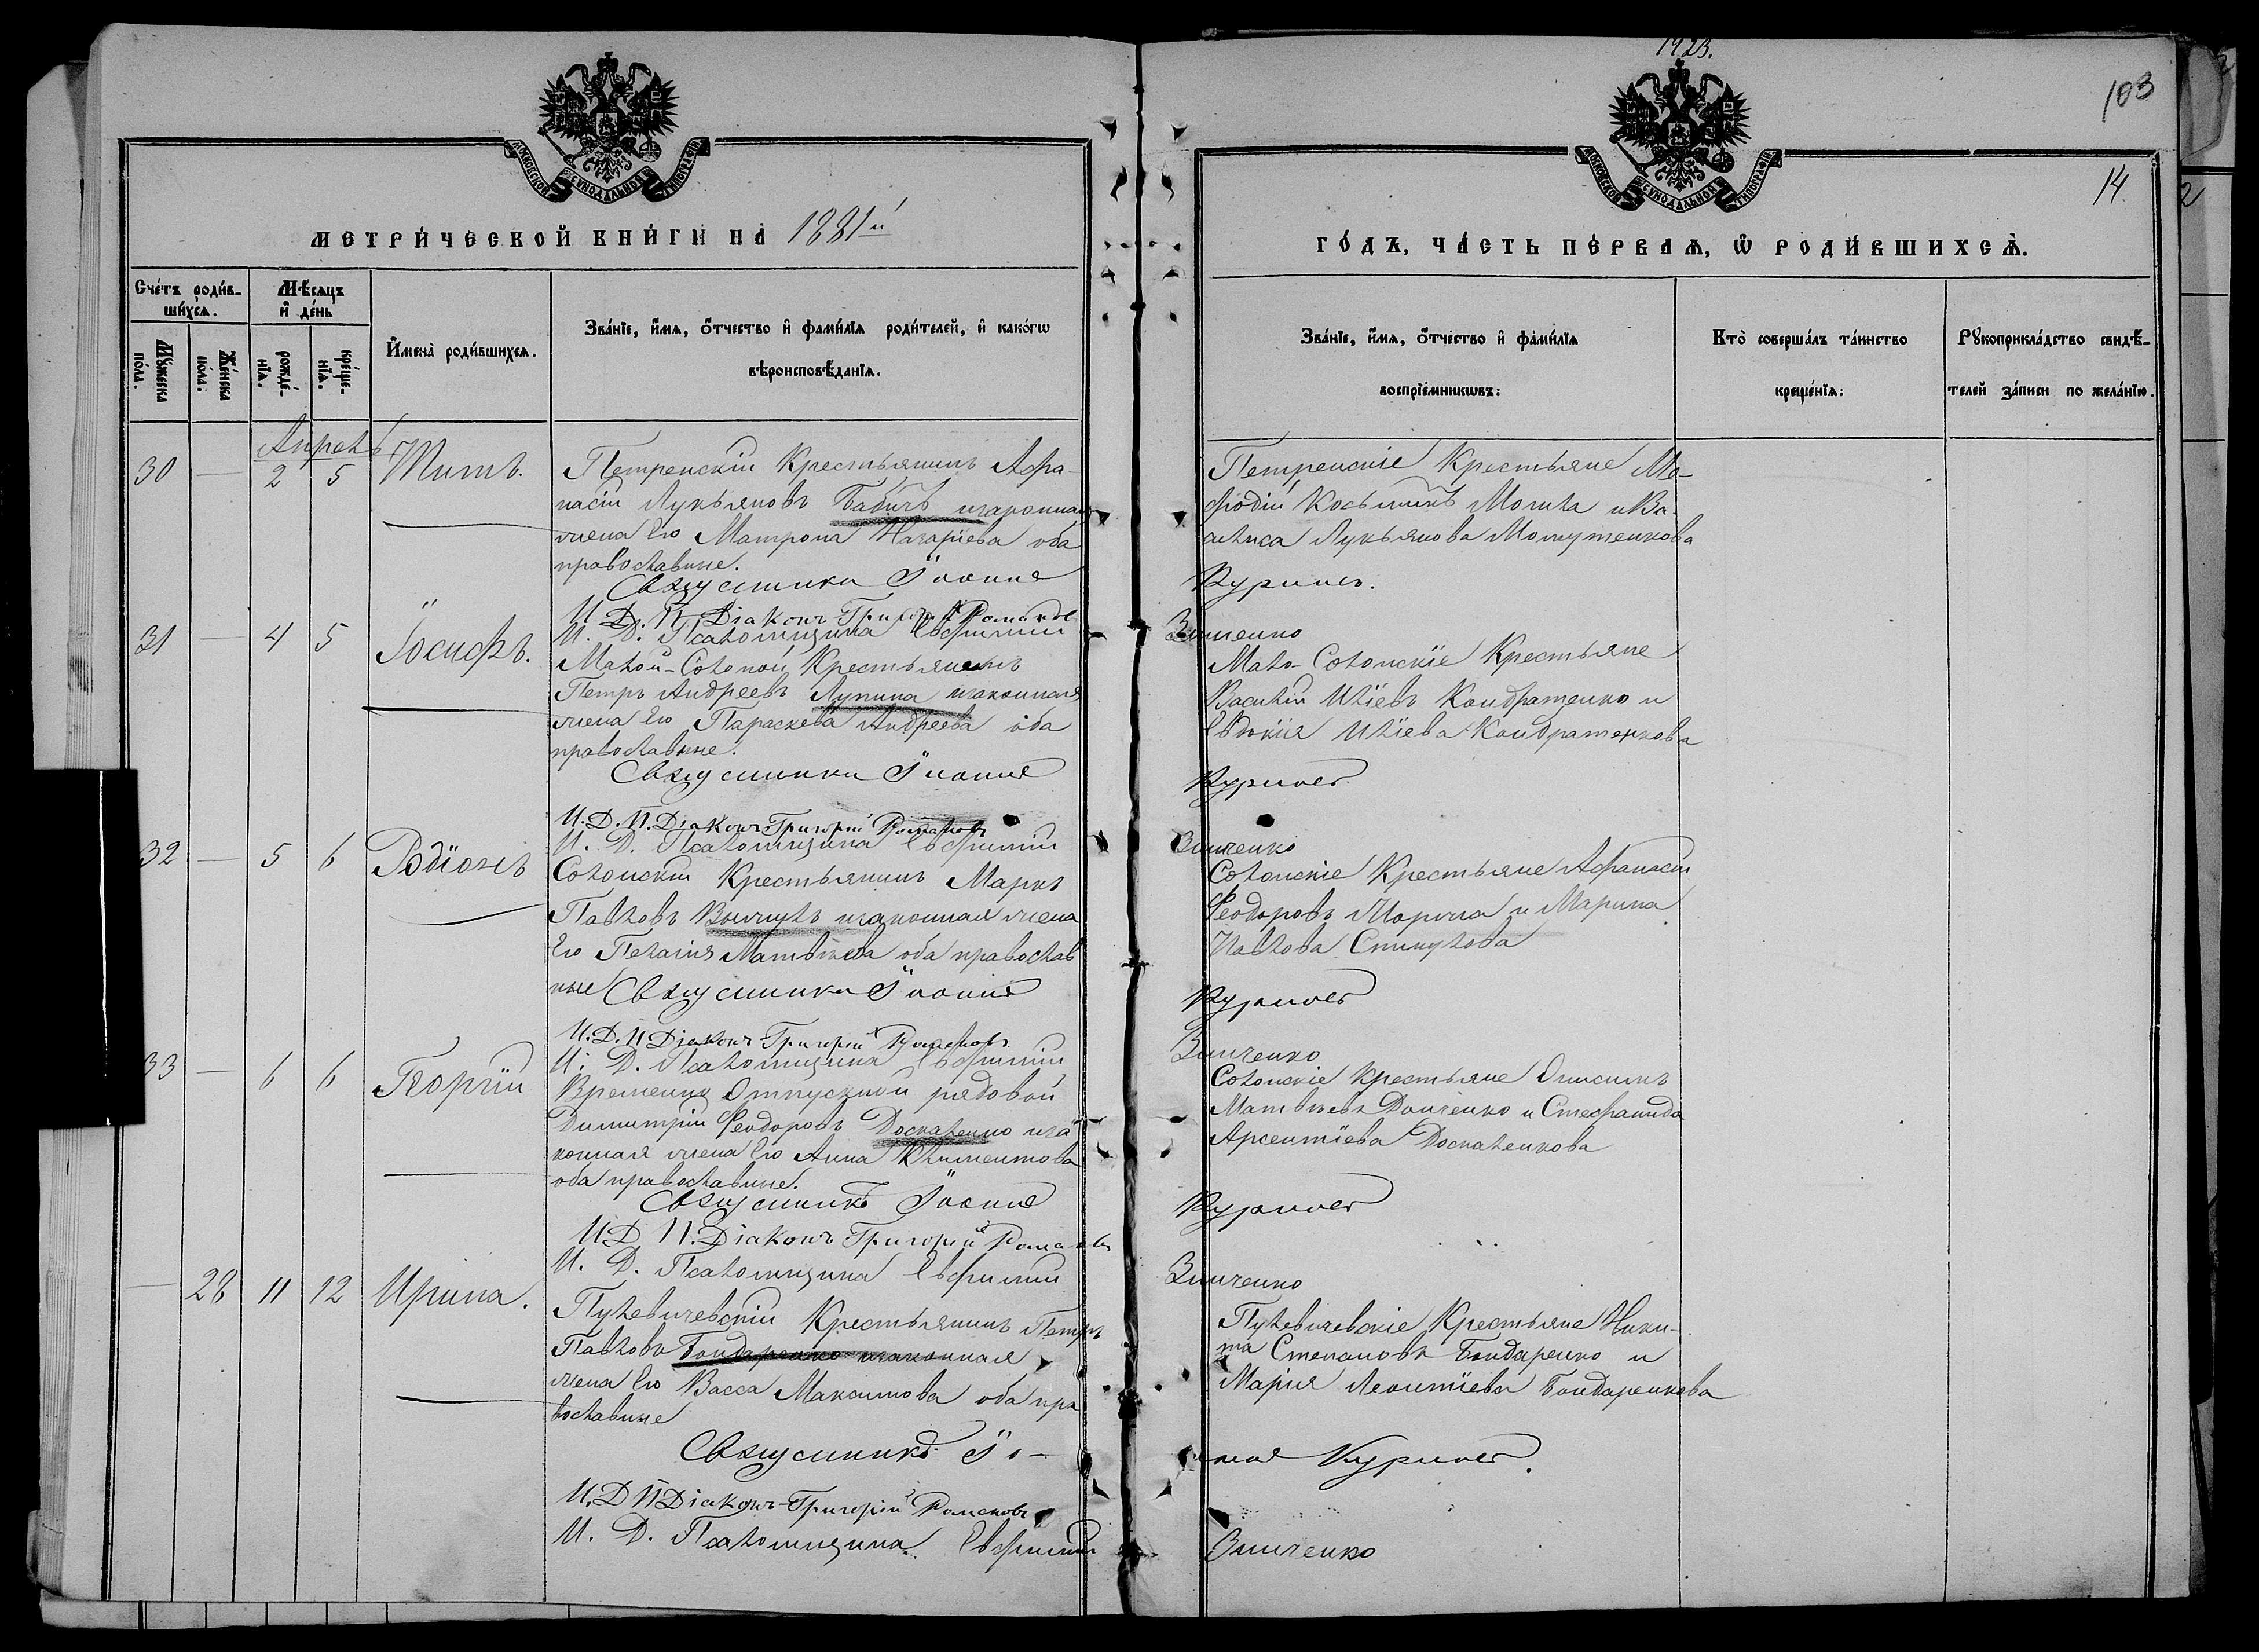 1423.
103
14.
МОСКОВСКОЙ СѴНОДАЛЬНОЙ ТИПОГРАФІИ
МОСКОВСКОЙ СѴНОДАЛЬНОЙ ТИПОГРАФІИ
МЕТРИ́ЧЕСКОЙ КНИ́ГИ НА̀ 1881й
ГО́ДЪ, ЧА́СТЬ ПЕ́РВАѦ, Ѡ РОДИ́ВШИХСѦ.
Сче́тъ роди́в-
ши́хсѧ.
Мѣ́сѧцъ
и̓ де́нь
Мꙋ́жеска
по́ла.
Же́нска
по́ла.
рожде́-
нїѧ.
креще́-
нїѧ.
И̓мена̀ роди́вшихсѧ.
Зва́нїе, и̓́мѧ, ѻ̓́тчество и̓ фами́лїѧ роди́телей, и̓ како́гѡ
вѣроисповѣ́данїѧ.
Зва́нїе, и̓́мѧ, ѻ̓́тчество и̓ фами́лїѧ
воспрїе́мникѡвъ.
Кто̀ соверша́лъ та́инство
креще́нїѧ.
Рꙋкоприкла́дство свидѣ́-
телей за́писи по жела́нїю.
Апрель
30 — 2 5 Титъ.
Петренскій Крестьянинъ Афа-
насій Лукьяновъ Бабичъ изаконная
жена Его Матрона Назаріева оба
православные.
Петренскіе Крестьяне Ме-
фодій Косьминъ Могила и Ва-
силиса Лукьянова
Священникъ Іоаннъ Куриловъ.
И. Д. П. Діаконъ Григорій Романовъ
И. Д. Псаломщика Евфимій Зинченко
31 — 4 5 Іосифъ.
Малой-Солоной Крестьянинъ
Петръ Андреевъ Лупина изаконная
жена Его Параскева Андреева оба
православные.
Мало-Солонскіе Крестьяне
Василій Иліевъ Кондратенко и
Евдокія Иліева Кондратенкова
Священникъ Іоаннъ Куриловъ
И. Д. П. Діаконъ Григорій Романовъ
И. Д. Псаломщика Евфимій Зинченко
32 — 5 6 Родіонъ
Солонскій Крестьянинъ Маркъ
Павловъ изаконная жена
Его Пелагія Матвѣева оба православ
ные
Солонскіе Крестьяне Афанасій
Феодоровъ и Марина
Павлова
Священникъ Іоаннъ Куриловъ
И. Д. П Діаконъ Григорій Романовъ
И. Д. Псаломщика Евфимій Зинченко
33 — 6 6 Георгій
Временно Отпускной рядовой
Димитрій Феодоровъ Доскаленко иза
конная жена Его Анна Климентова
оба православные.
Солонскіе Крестьяне Онисимъ
Матвѣевъ Донченко и Стефанида
Арсентіева Доскаленкова
Священникъ Іоаннъ Куриловъ
И Д П. Діаконъ Григорій Романовъ
И. Д. Псаломщика Евфимій Зинченко
— 28 11 12 Ирина.
Пулевичевскій Крестьянинъ Петръ
Павловъ Бондаренко изаконная
жена Его Васса Максимова оба пра
вославные
Пулевичевскіе Крестьяне Ники-
та Степановъ Бондаренко и
Марія Леонтіева Бондаренкова
Священникъ Іо- аннъ Куриловъ.
И. Д П Діаконъ Григорій Романовъ
И. Д. Псаломщика Евфимій Зинченко